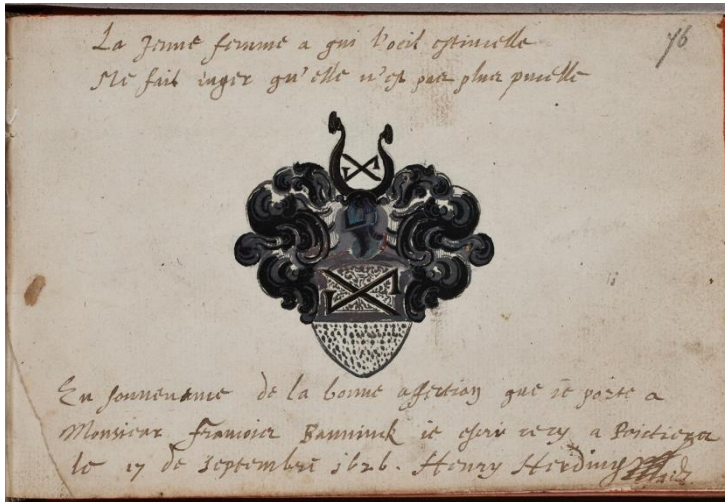 La Jeune femme a qui l'oeil estincelle
Me fait iuger qu'elle n'est pas plus pucelle
76
En souvenance de la bonne affection que ie porte a
Monsieur Francois Banninck ie escrivi cecy a Poictiers
le 17 de Septembre 1626. Henry Herding